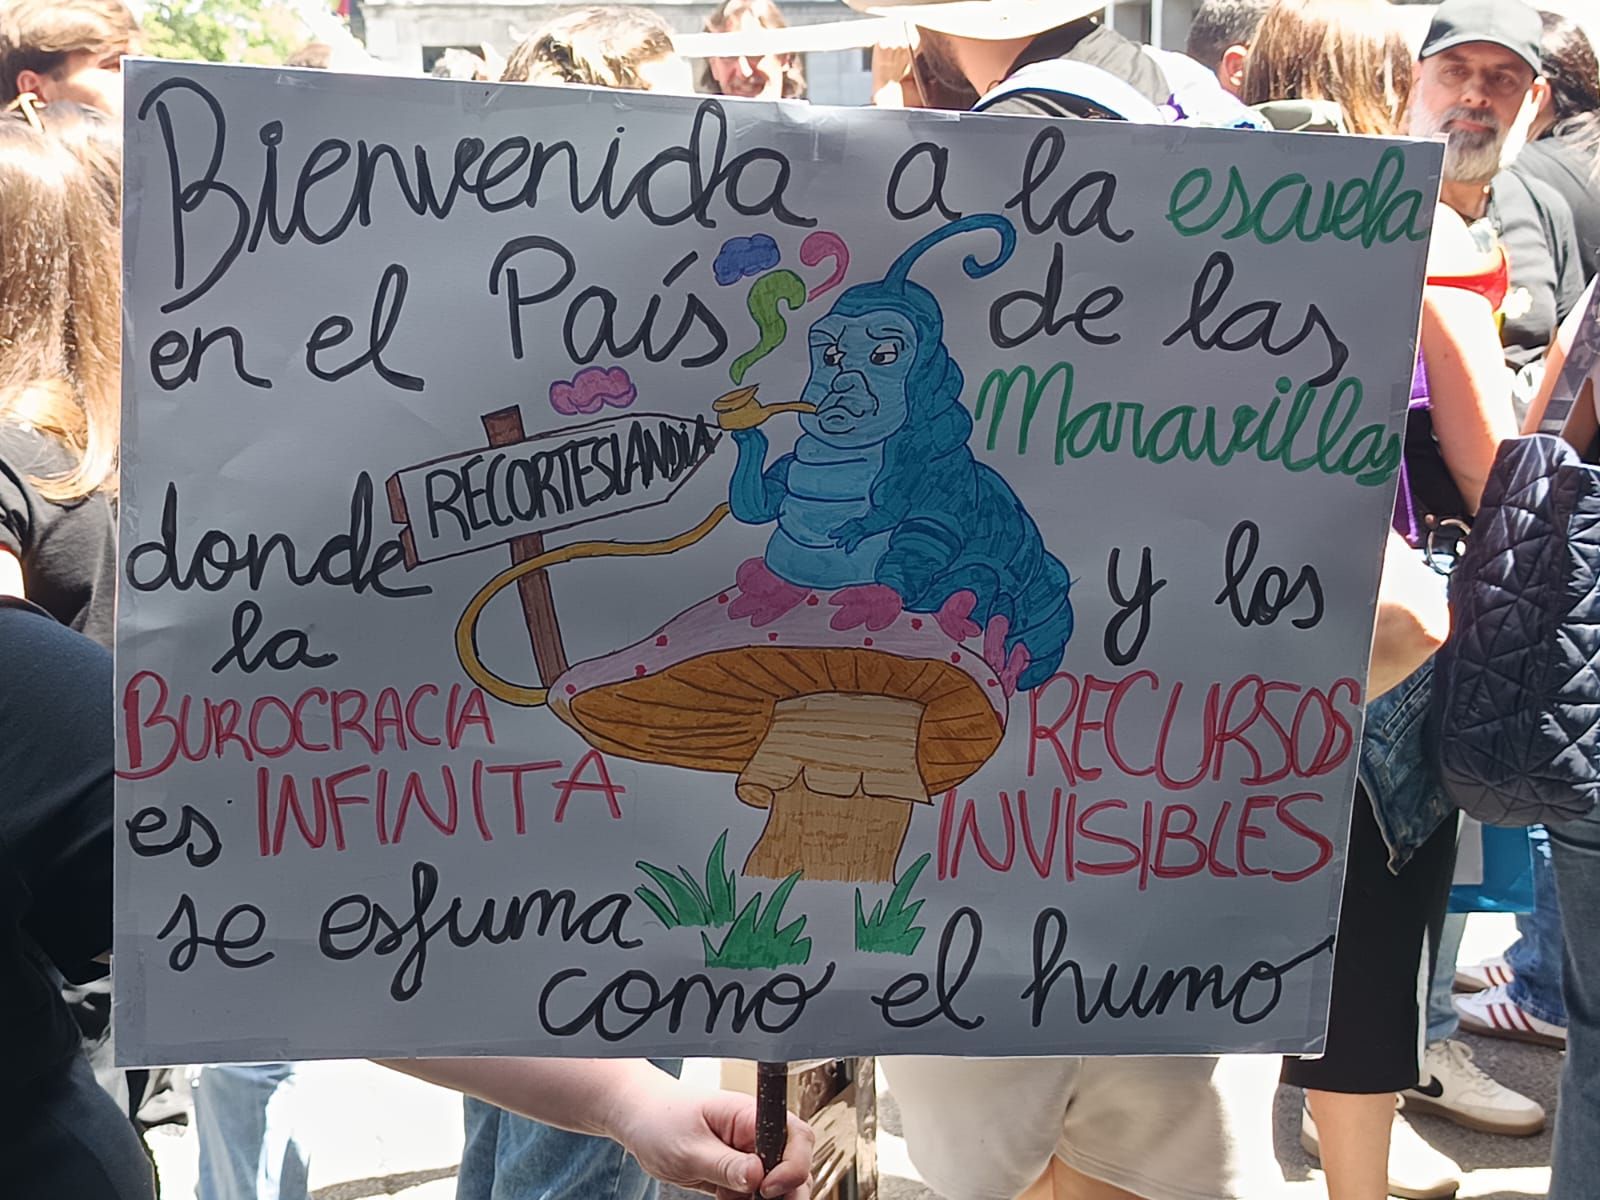 Bienvenida a la escuela
en el País de las
Maravillas
RECORTESLANDIA
donde y los
la
BUROCRACIA RECURSOS
es INFINITA INVISIBLES
se esfuma
como el humo